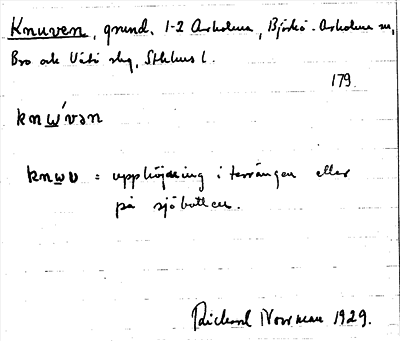 Knuven, grund. 1-2 Arholma, Björkö-Arholma sn,
Bro och Vätö skg, Sthlms l.
179.
knẃ̲vən
knw̲v = upphöjning i terrängen eller
på sjöbotten.
Rickard Norrman 1929.